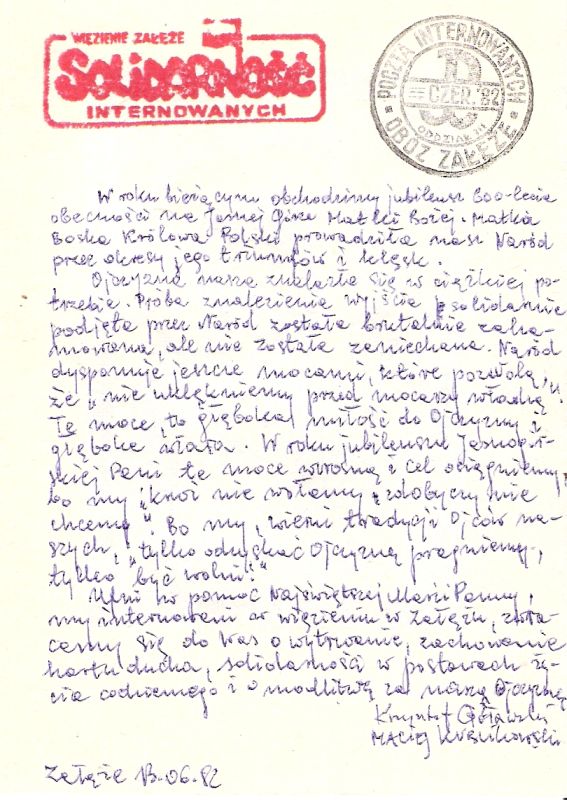 WIĘZIENIE ZAŁĘŻE
SOLIDARNOŚĆ
INTERNOWANYCH
POCZTA INTERNOWANYCH
CZER. '82
ODDZIAŁ
OBÓZ ZAŁĘŻE
W roku bieżącym obchodzimy jubileusz 600-lecia
obecności na Jasnej Górze Matki Bożej. Matka
Boska Królowa Polski prowadziła nasz Naród
przez okresy jego triumfów i klęsk.
Ojczyzna nasza znalazła się w ciężkiej po-
trzebie. Próba znalezienia wyjścia solidarnie
podjęta przez Naród została brutalnie zaha-
mowana, ale nie została zaniechana. Naród
dysponuje jeszcze mocami, które pozwolą,
że „nie uklękniemy przed mocarzy władzą".
Te moce, to głęboka miłość do Ojczyzny i
głęboka wiara. W roku jubileuszu Jasnogór-
skiej Pani te moce wzrosną i cel osiągniemy,
bo my „krwi nie wołamy, zdobyczy nie
chcemy". Bo my, wierni tradycji Ojców na-
szych, „tylko odzyskać Ojczyznę pragniemy,
tylko być wolni!"
Ufni w pomoc Najświętszej Marii Panny,
my internowani w więzieniu w Załężu, zwra-
camy się do Was o wytrwanie, zachowanie
hartu ducha, solidarności w postawach ży-
cia codziennego i o modlitwę za naszą Ojczyznę
Krzysztof
Maciej
Załęże 13.06.82